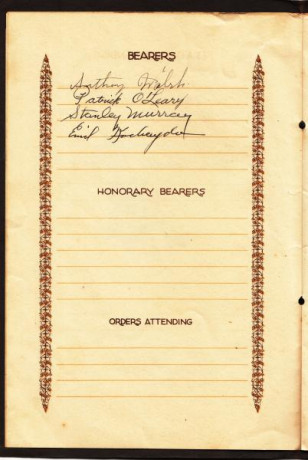 BEARERS
Anthony Welsh
Patrick O'Leary
Stanley Murray
Emil
HONORARY BEARERS
ORDERS ATTENDING